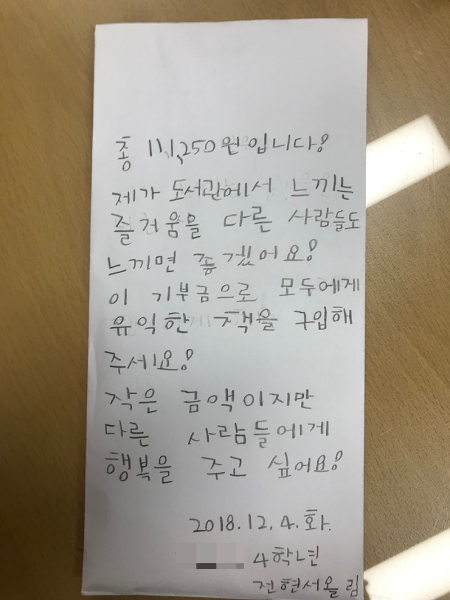 총 111,250원입니다!
제가 도서관에서 느끼는
즐거움을 다른 사람들도
느끼면 좋겠어요!
이 기부금으로 모두에게
유익한 책을 구입해
주세요!
작은 금액이지만
다른 사람들에게
행복을 주고 싶어요!
2018.12.4.화.
4학년
전현서올림